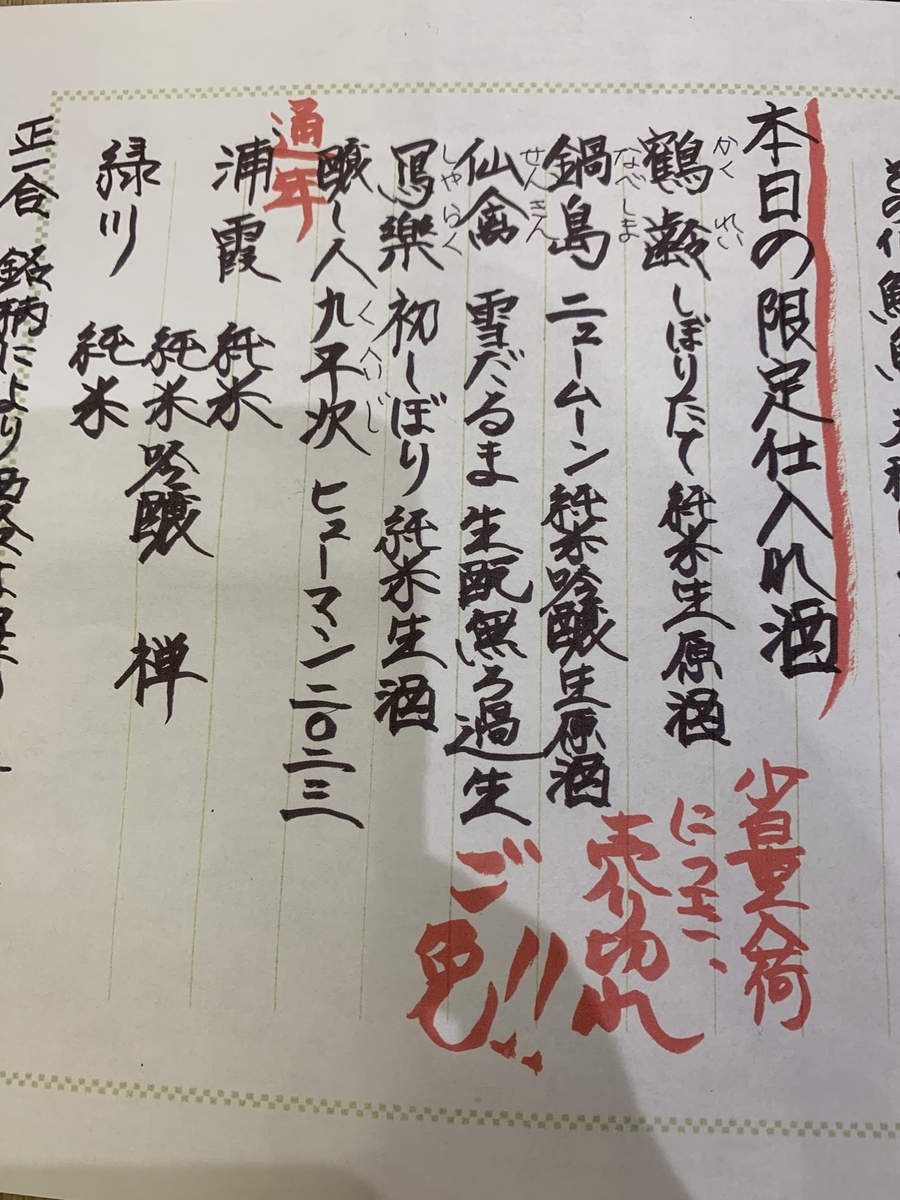 本日の限定仕入れ酒
少量入荷
につき、
売り切れ
ご免!!
かくれい
鶴齢 しぼりたて 純米生原酒
なべしま
鍋島 ニュームーン 純米吟醸生原酒
せんきん
仙禽 雪だるま 生酛無ろ過生
しゃらく
寫樂 初しぼり 純米生酒
くへいじ
醸し人 九平次 ヒューマン 二〇二三
通年
浦霞 純米
純米吟醸 禅
緑川 純米
正一合 銘柄により